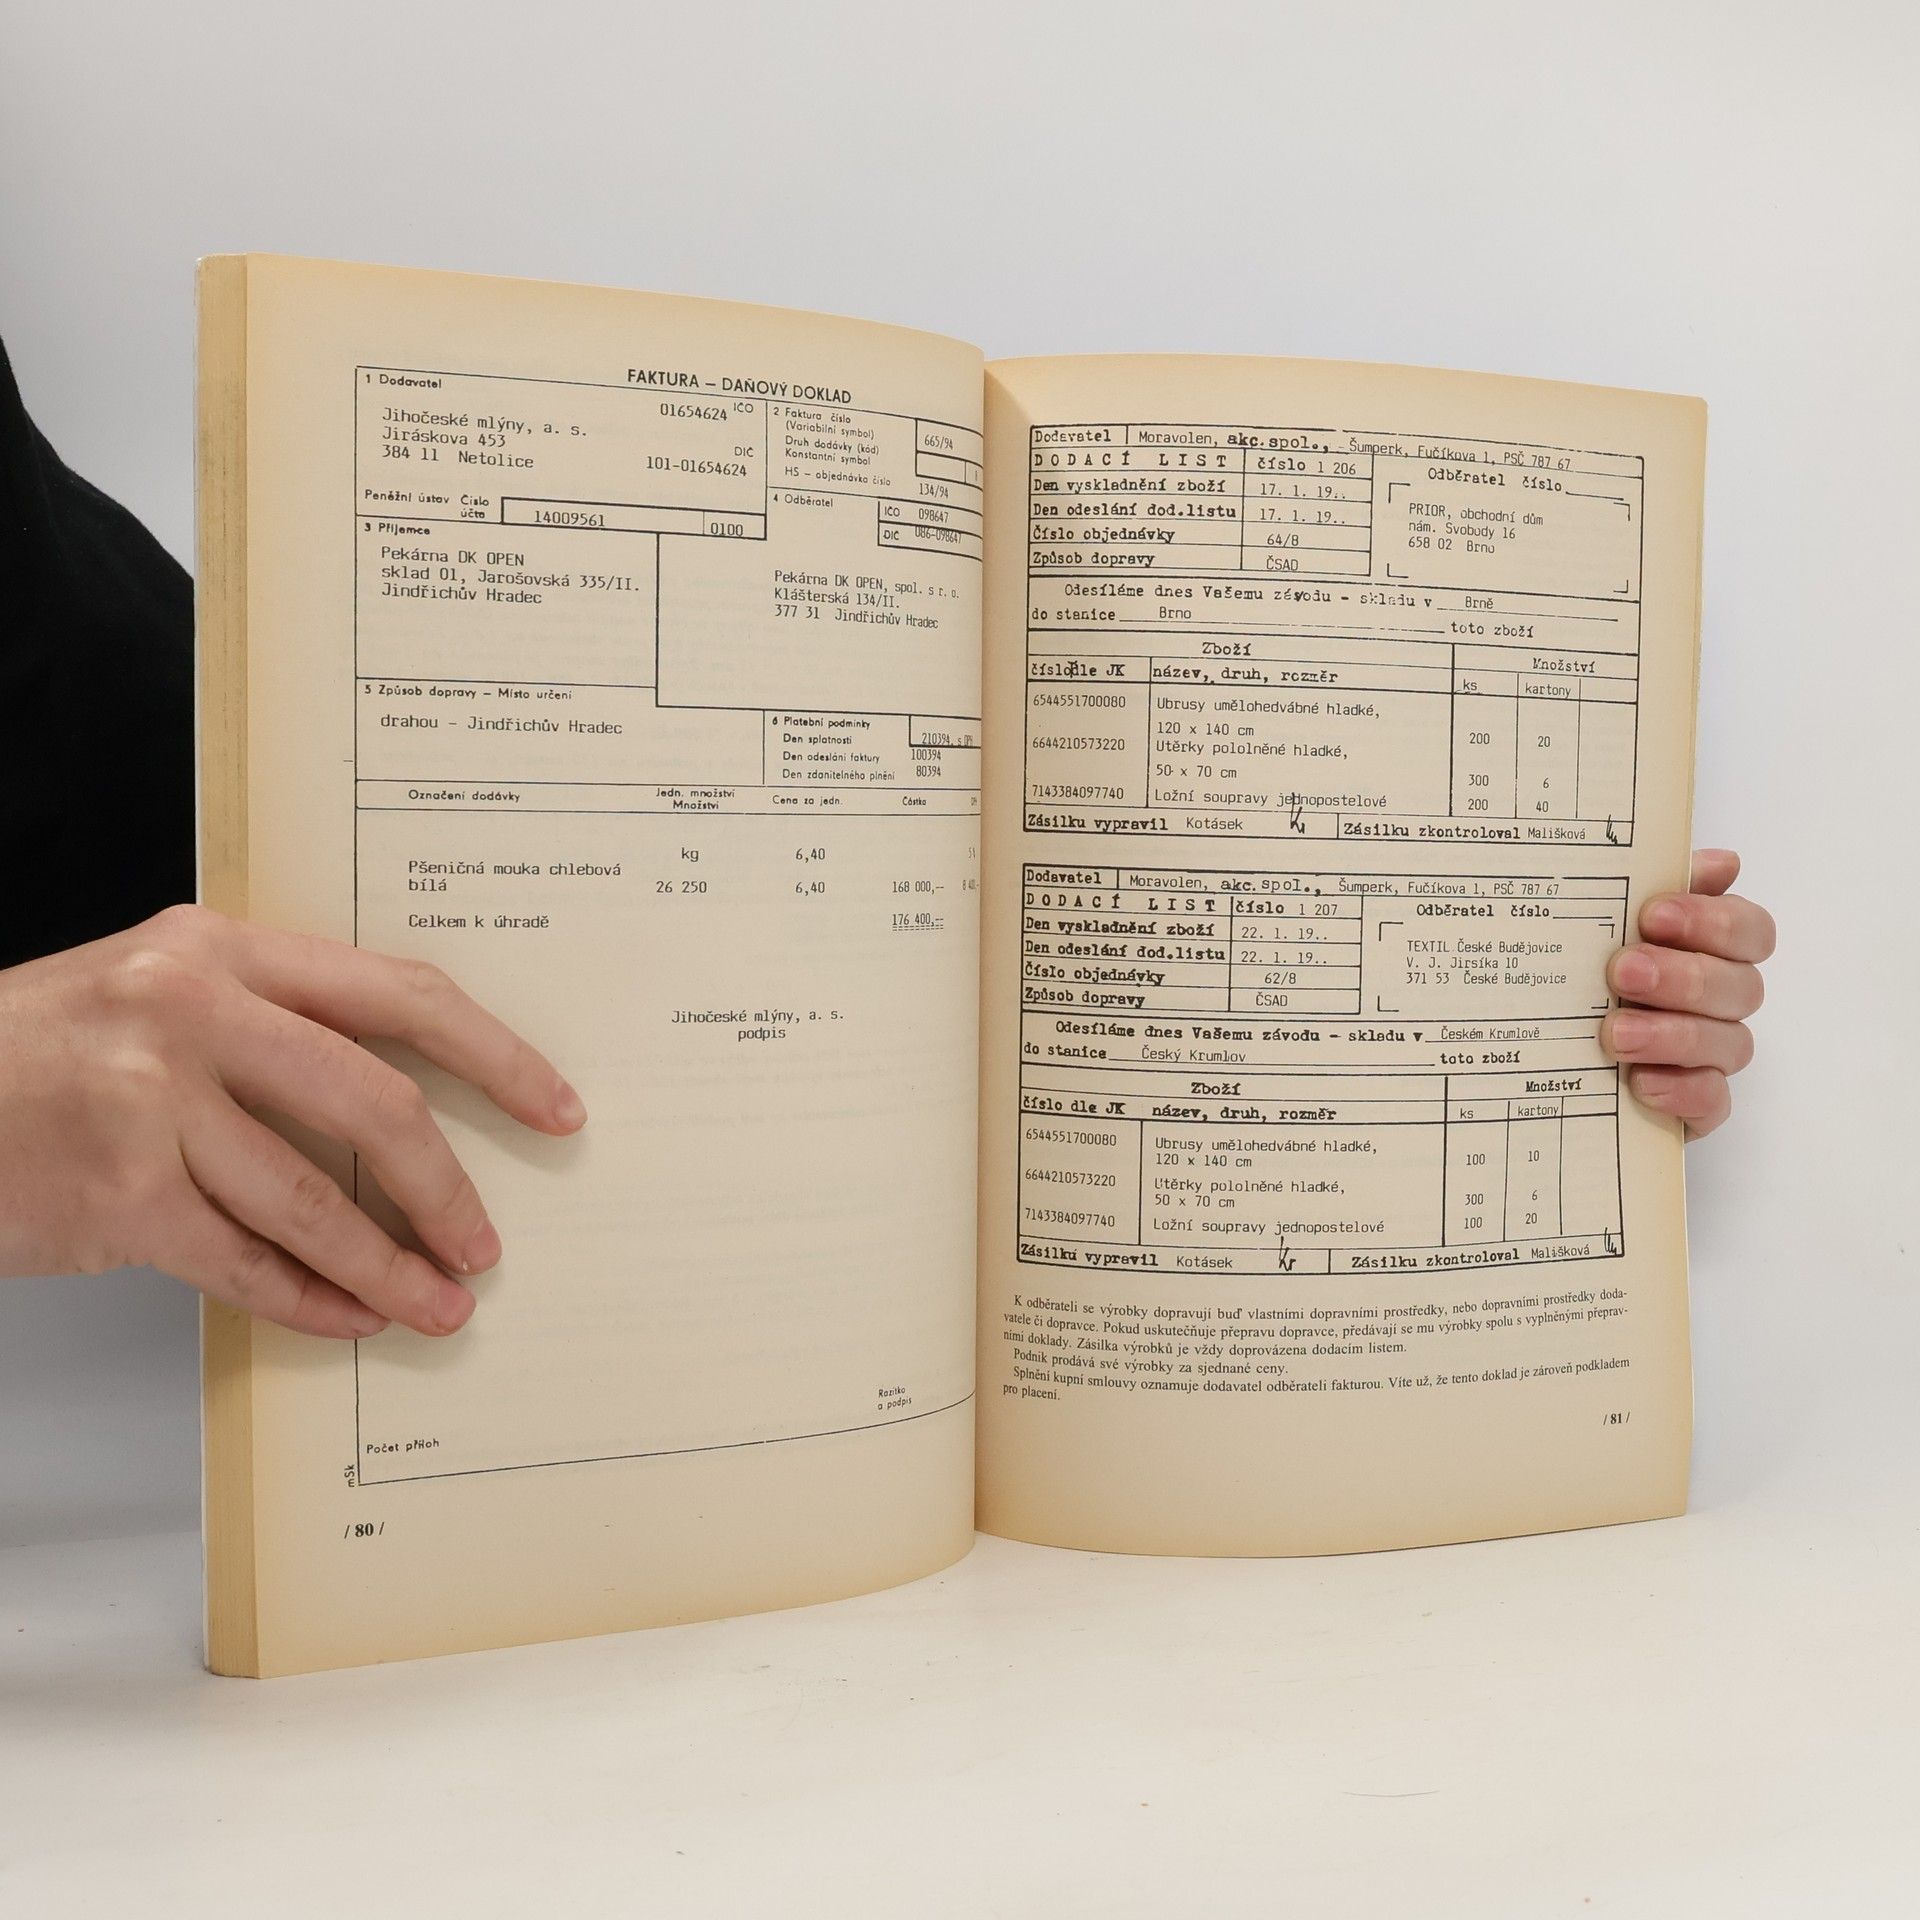 FAKTURA – DAŇOVÝ DOKLAD
1 Dodavatel
01654624 IČO
Jihočeské mlýny, a. s.
Jiráskova 453
384 11 Netolice
DIČ
101-01654624
Peněžní ústav Číslo účtu
14009561 0100
2 Faktura číslo
(Variabilní symbol)
665/94
Druh dodávky (kód)
Konstantní symbol
HS – objednávka číslo
134/94
3 Příjemce
Pekárna DK OPEN
sklad 01, Jarošovská 335/II.
Jindřichův Hradec
4 Odběratel
IČO 098647
DIČ 086-098647
Pekárna DK OPEN, spol. s r. o.
Klášterská 134/II.
377 31 Jindřichův Hradec
5 Způsob dopravy – Místo určení
drahou – Jindřichův Hradec
6 Platební podmínky
Den splatnosti 210394
Den odeslání faktury 100394
Den zdanitelného plnění 80394
Označení dodávky Jedn. množství Množství Cena za jedn. Částka
kg 6,40
Pšeničná mouka chlebová
bílá 26 250 6,40 168 000,—
Celkem k úhradě 176 400,—
Jihočeské mlýny, a. s.
podpis
Razítko
a podpis
Počet příloh
mSk
/ 80 /
Dodavatel Moravolen, akc.spol., Šumperk, Fučíkova 1, PSČ 787 67
DODACÍ LIST číslo 1 206
Den vyskladnění zboží 17. 1. 19..
Den odeslání dod.listu 17. 1. 19..
Číslo objednávky 64/8
Způsob dopravy ČSAD
Odběratel číslo
PRIOR, obchodní dům
nám. Svobody 16
658 02 Brno
Odesíláme dnes Vašemu závodu – skladu v Brně
do stanice Brno toto zboží
Zboží Množství
číslo dle JK název, druh, rozměr ks kartony
6544551700080 Ubrusy umělohedvábné hladké,
120 x 140 cm 200 20
6644210573220 Utěrky pololněné hladké,
50 x 70 cm 300 6
7143384097740 Ložní soupravy jednopostelové 200 40
Zásilku vypravil Kotásek Zásilku zkontroloval Mališková
Dodavatel Moravolen, akc.spol., Šumperk, Fučíkova 1, PSČ 787 67
DODACÍ LIST číslo 1 207
Den vyskladnění zboží 22. 1. 19..
Den odeslání dod.listu 22. 1. 19..
Číslo objednávky 62/8
Způsob dopravy ČSAD
Odběratel číslo
TEXTIL České Budějovice
V. J. Jirsíka 10
371 53 České Budějovice
Odesíláme dnes Vašemu závodu – skladu v Českém Krumlově
do stanice Český Krumlov toto zboží
Zboží Množství
číslo dle JK název, druh, rozměr ks kartony
6544551700080 Ubrusy umělohedvábné hladké,
120 x 140 cm 100 10
6644210573220 Utěrky pololněné hladké,
50 x 70 cm 300 6
7143384097740 Ložní soupravy jednopostelové 100 20
Zásilku vypravil Kotásek Zásilku zkontroloval Mališková
K odběrateli se výrobky dopravují buď vlastními dopravními prostředky, nebo dopravními prostředky doda-
vatele či dopravce. Pokud uskutečňuje přepravu dopravce, předávají se mu výrobky spolu s vyplněnými přeprav-
ními doklady. Zásilka výrobků je vždy doprovázena dodacím listem.
Podnik prodává své výrobky za sjednané ceny.
Splnění kupní smlouvy oznamuje dodavatel odběrateli fakturou. Víte už, že tento doklad je zároveň podkladem
pro placení.
/ 81 /